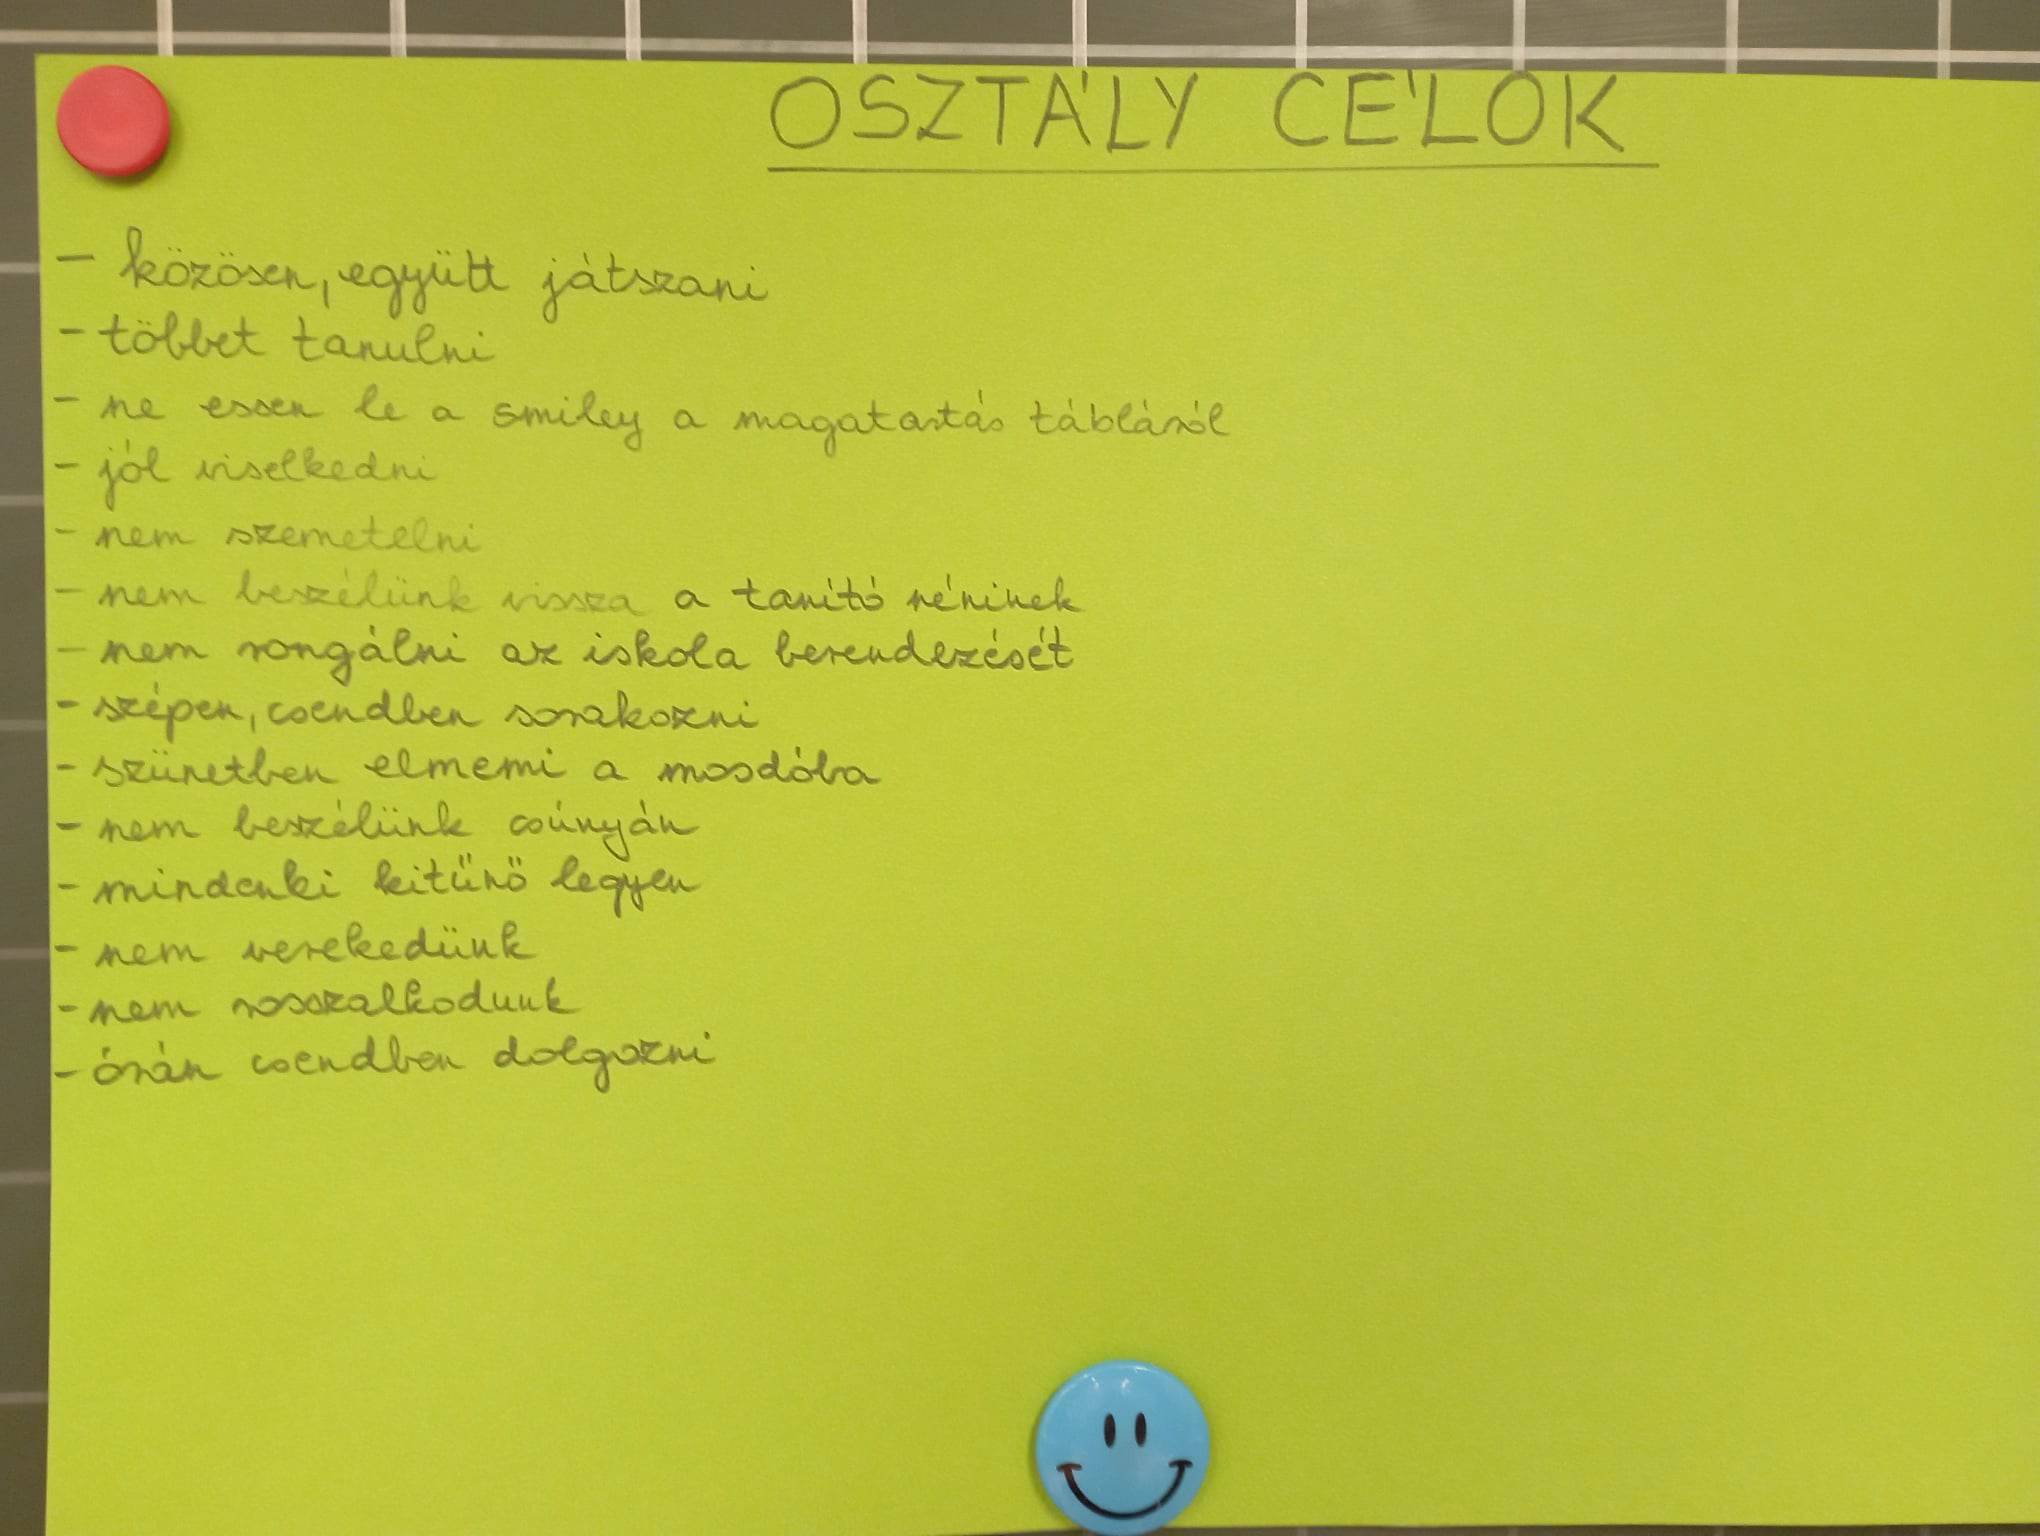 OSZTÁLY CÉLOK
- közösen, együtt játszani
- többet tanulni
- ne essen le a smiley a magatartás tábláról
- jól viselkedni
- nem szemetelni
- nem beszélünk vissza a tanító néninek
- nem rongálni az iskola berendezését
- szépen, csendben sorakozni
- szünetben elmenni a mosdóba
- nem beszélünk csúnyán
- mindenki kitűnő legyen
- nem verekedünk
- nem rosszalkodunk
- órán csendben dolgozni